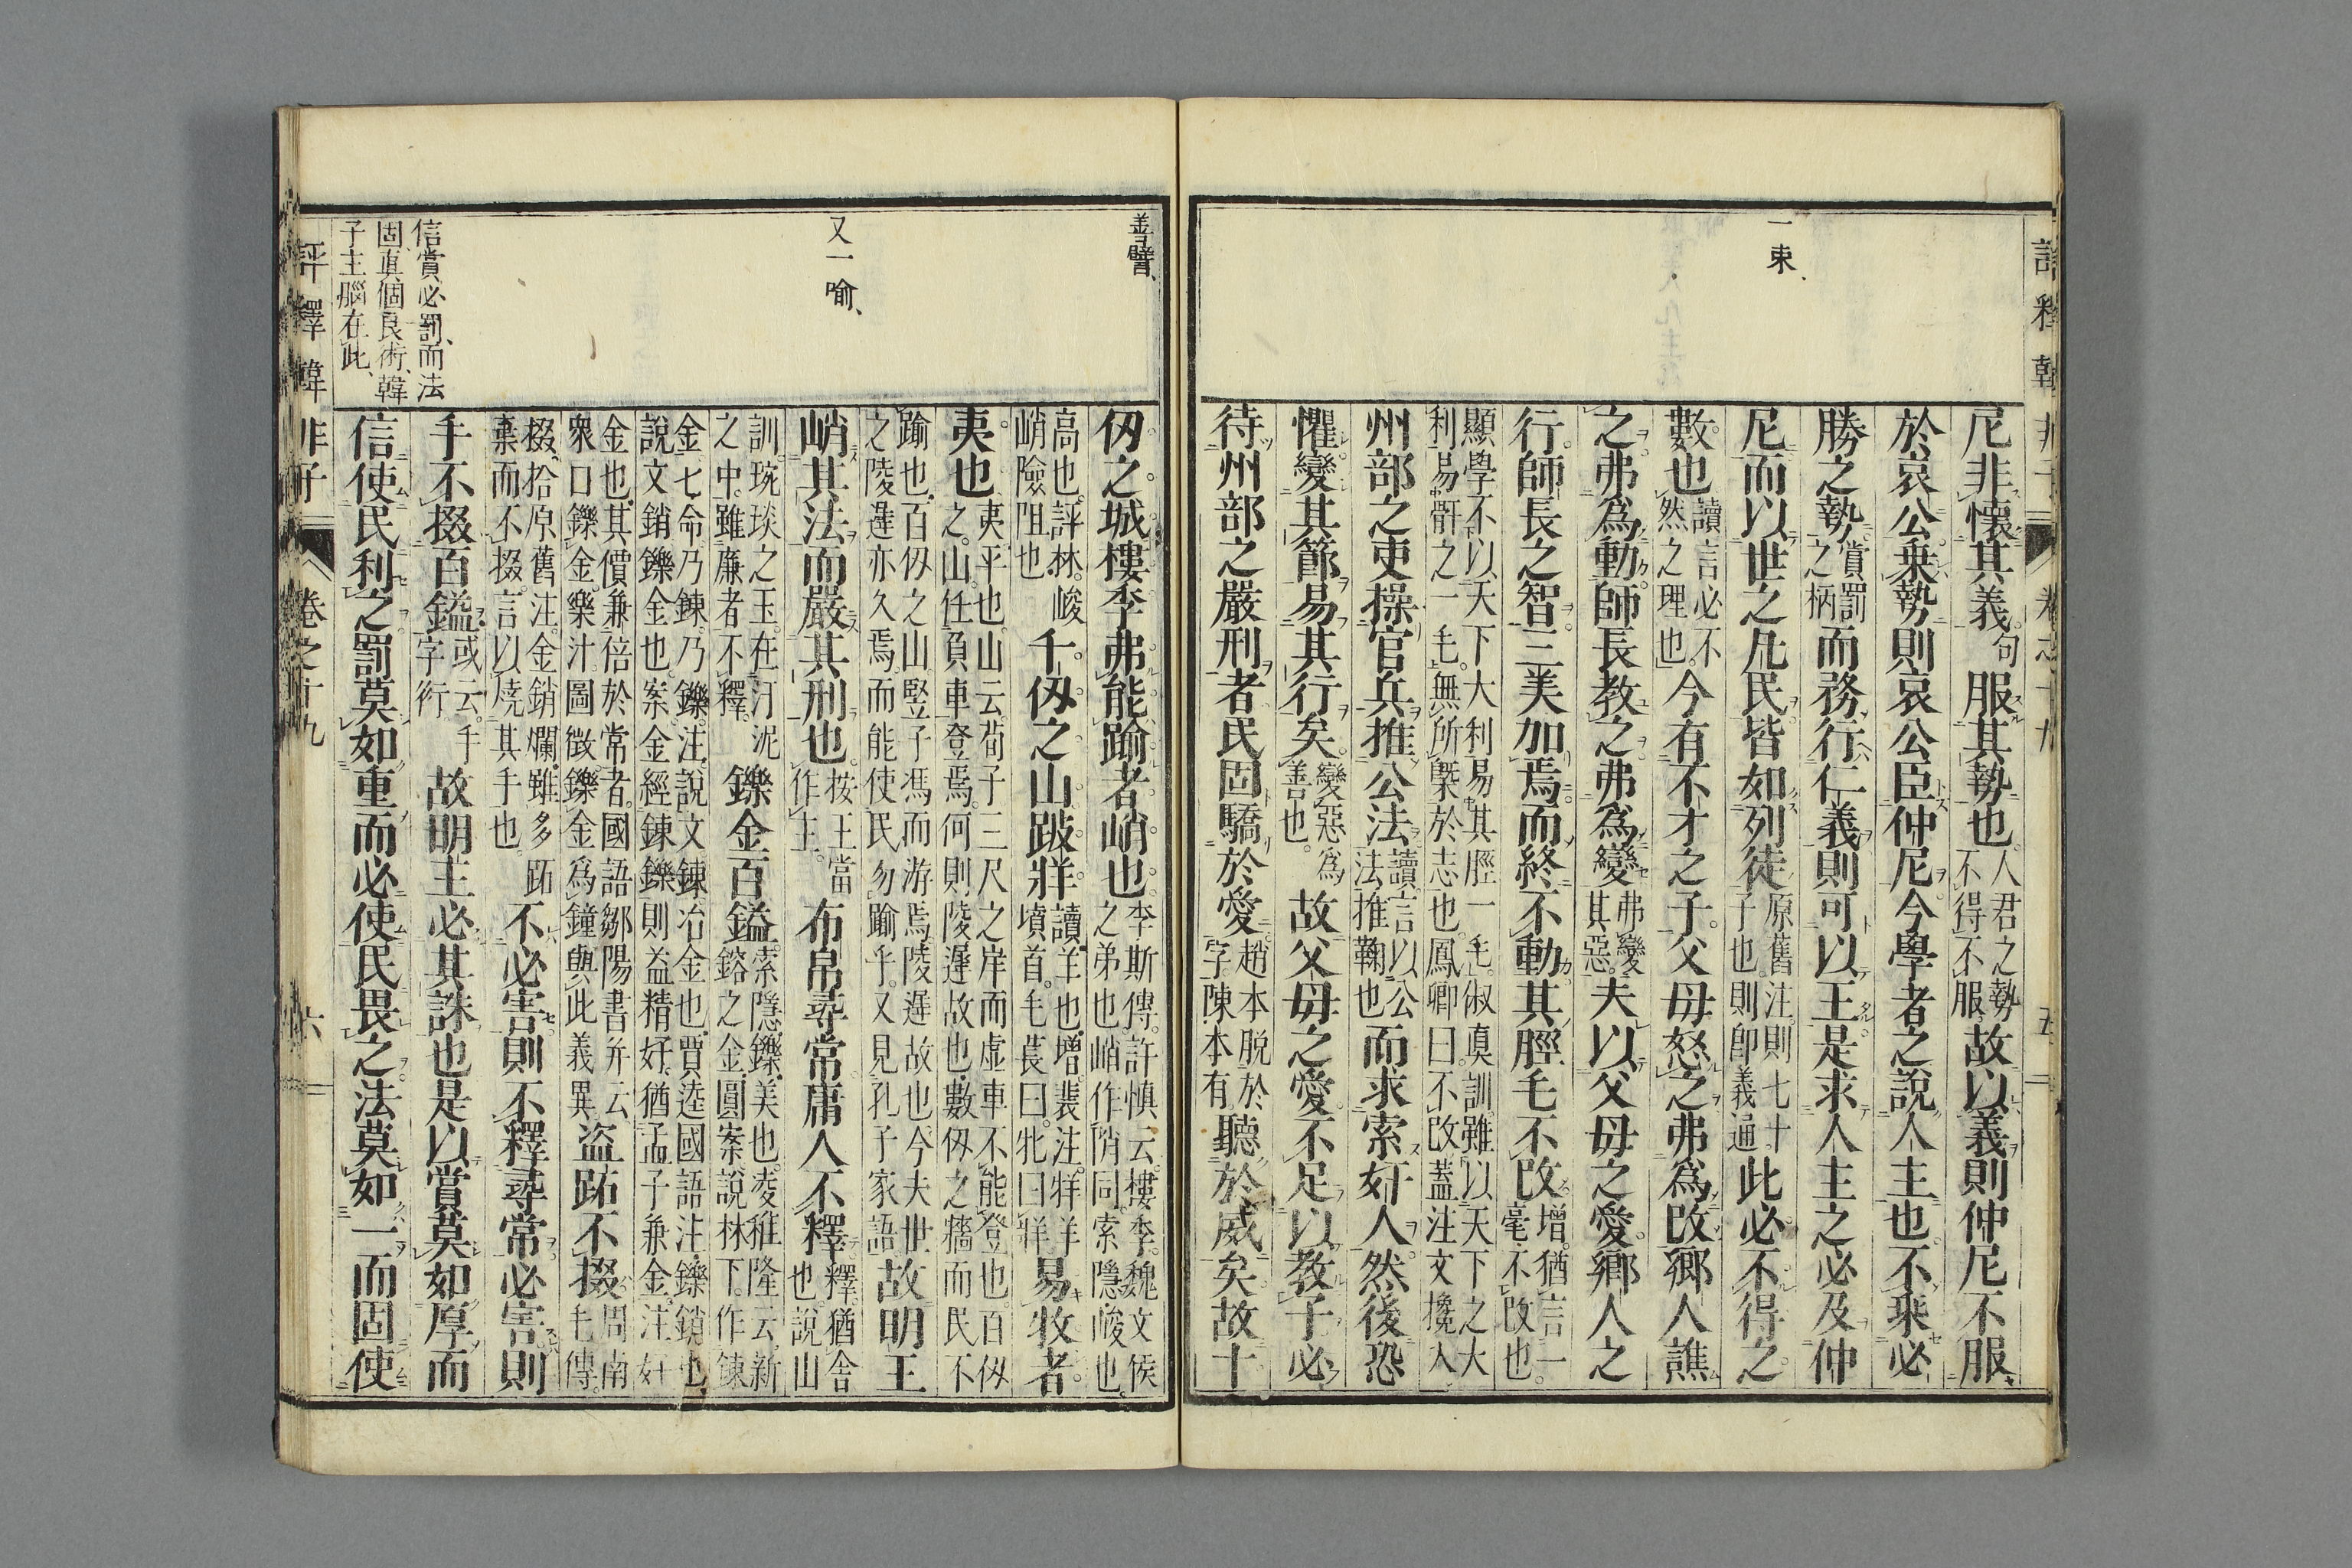 一束
尼非懷其義句服其勢也人君之勢不得不服故以義則仲尼不服
於哀公乘勢則哀公臣仲尼今學者之說人主也不乘必
勝之勢賞罰之柄而務行仁義則可以王是求人主之必及仲
尼而以世之凡民皆如列徒原舊注則七十子也則卽義通此必不得之
數也讀言必不然之理也今有不才之子父母怒之弗爲改鄉人譙
之弗爲動師長教之弗爲變弗變其惡夫以父母之愛鄉人之
行師長之智三美加焉而終不動其脛毛不改增猶言一毫不改也
顯學不以天下大利易其脛一毛俶眞訓雖以天下之大利易骭之一毛無所槩於志也鳳卿曰不改蓋注文攙入
州部之吏操官兵推公法讀言以公法推鞠也而求索奸人然後恐
懼變其節易其行矣變惡爲善也故父母之愛不足以教子必
待州部之嚴刑者民固驕於愛趙本脫於字陳本有聽於威矣故十
評釋韓非子
卷之十九
五
善譬
仭之城樓季弗能踰者峭也李斯傳許愼云樓季魏文侯之弟也峭作陗同索隱峻也
高也評林峻峭險阻也千仭之山跛牂讀羊也增裴注牂羊墳首毛萇曰牝曰牂易牧者
夷也夷平也山云荀子三尺之岸而虛車不能登也百仭之山任負車登焉何則陵遲故也數仭之牆而民不
踰也百仭之山竪子馮而游焉陵遲故也今夫世之陵遲亦久焉而能使民勿踰乎又見孔子家語故明王
又一喻
峭其法而嚴其刑也按王當作主布帛尋常庸人不釋釋猶舍也說山
訓琬琰之玉在汙泥之中雖廉者不釋鑠金百鎰索隱鑠美也凌稚隆云新鎔之金圓案說林下作錬
金七命乃錬乃鑠注說文錬冶金也賈逵國語注鑠銷也說文銷鑠金也案金經錬鑠則益精好猶孟子兼金注好
金也其價兼倍於常者國語鄒陽書并云衆口鑠金樂汁圖徵鑠金爲鐘與此義異盜跖不掇周南毛傳
掇拾原舊注金銷爛雖多跖棄而不掇言以燒其手也不必害則不釋尋常必害則
手不掇百鎰或云手字衍故明主必其誅也是以賞莫如厚而
信使民利之罰莫如重而必使民畏之法莫如一而固使
信賞必罰而法
固眞個良術韓
子主腦在此
評釋韓非子
卷之十九
六